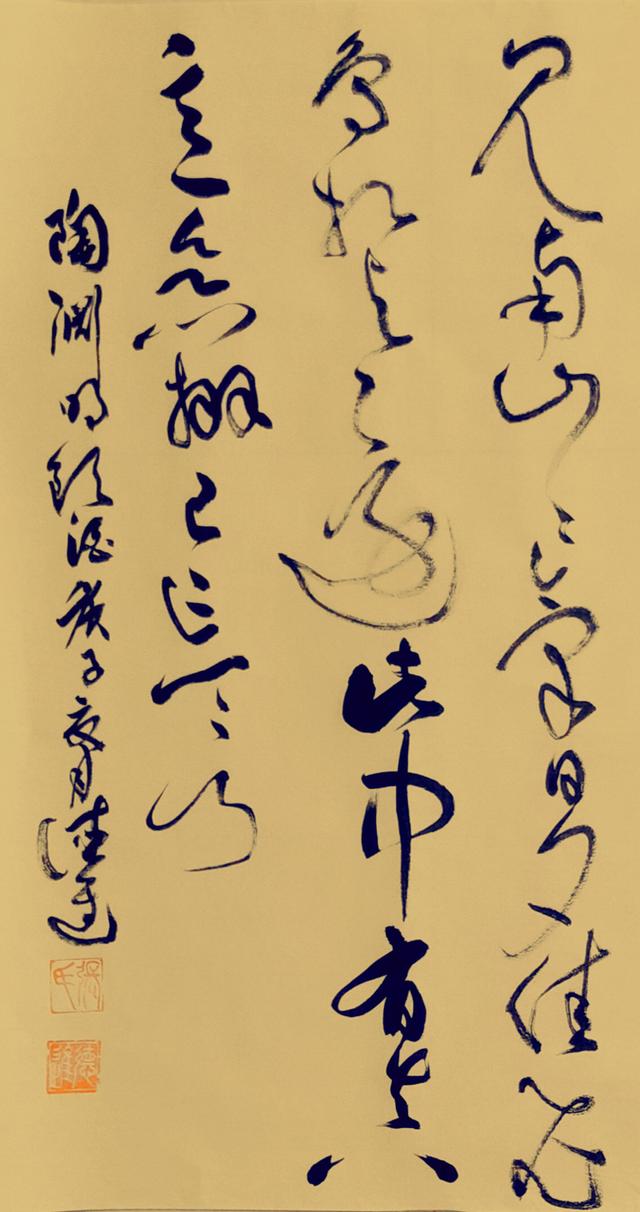 見南山氣日夕佳飛
鳥相与還此中有真
意欲辨已忘言
陶渊明飲酒庚子夏月